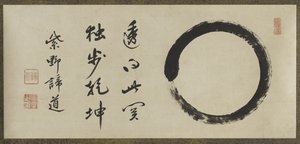 透過此関
独歩乾坤
紫野諦道